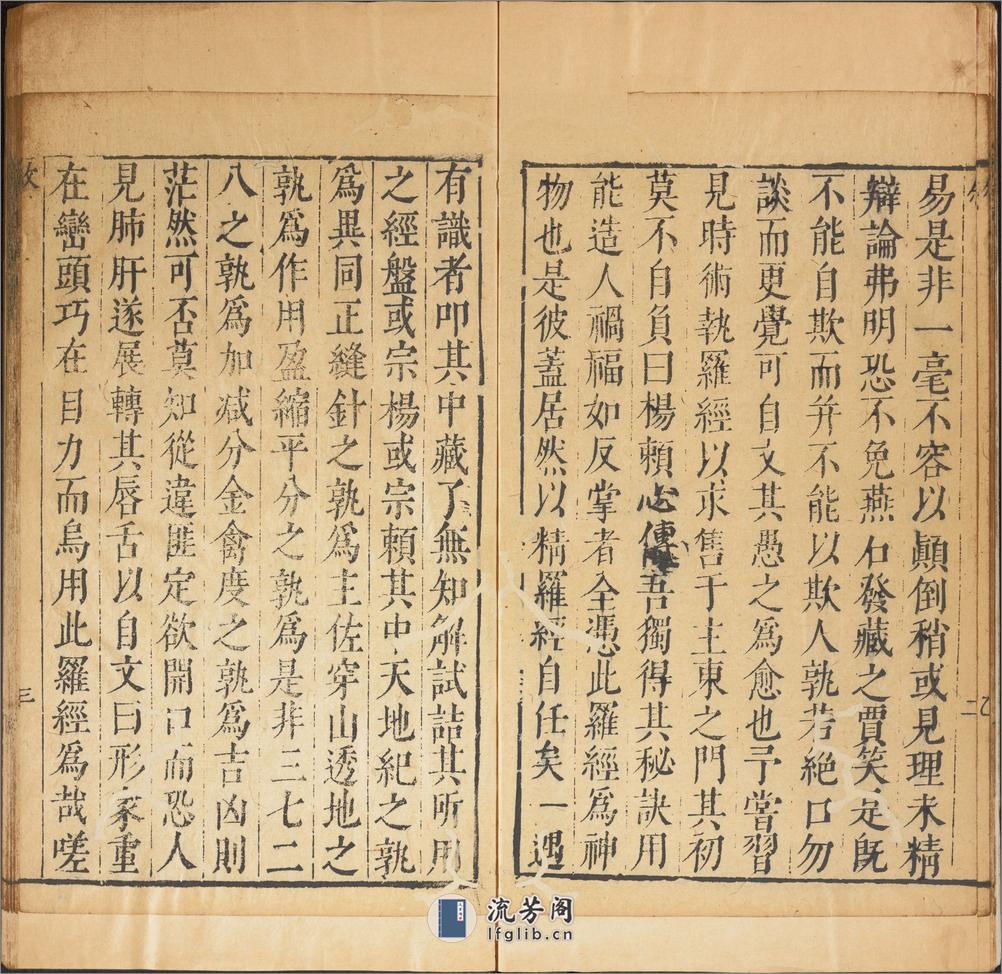 易是非一毫不容以顚倒稍或見理未精
辯論弗明恐不免燕石發藏之賈笑是旣
不能自欺而幷不能以欺人孰若絕口勿
談而更覺可自文其愚之爲愈也予嘗習
見時術執羅經以求售于主東之門其初
莫不自負曰楊賴心傳吾獨得其秘訣用
能造人禍福如反掌者全憑此羅經爲神
物也是彼蓋居然以精羅經自任矣一遇
有識者叩其中藏了無知解試詰其所用
之經盤或宗楊或宗賴其中天地紀之孰
爲異同正縫針之孰爲主佐穿山透地之
孰爲作用盈縮平分之孰爲是非三七二
八之孰爲加减分金禽度之孰爲吉凶則
茫然可否莫知從違匪定欲開口而恐人
見肺肝遂展轉其唇舌以自文曰形家重
在巒頭巧在目力而烏用此羅經爲哉嗟
二
三
流芳阁
lfglib.cn